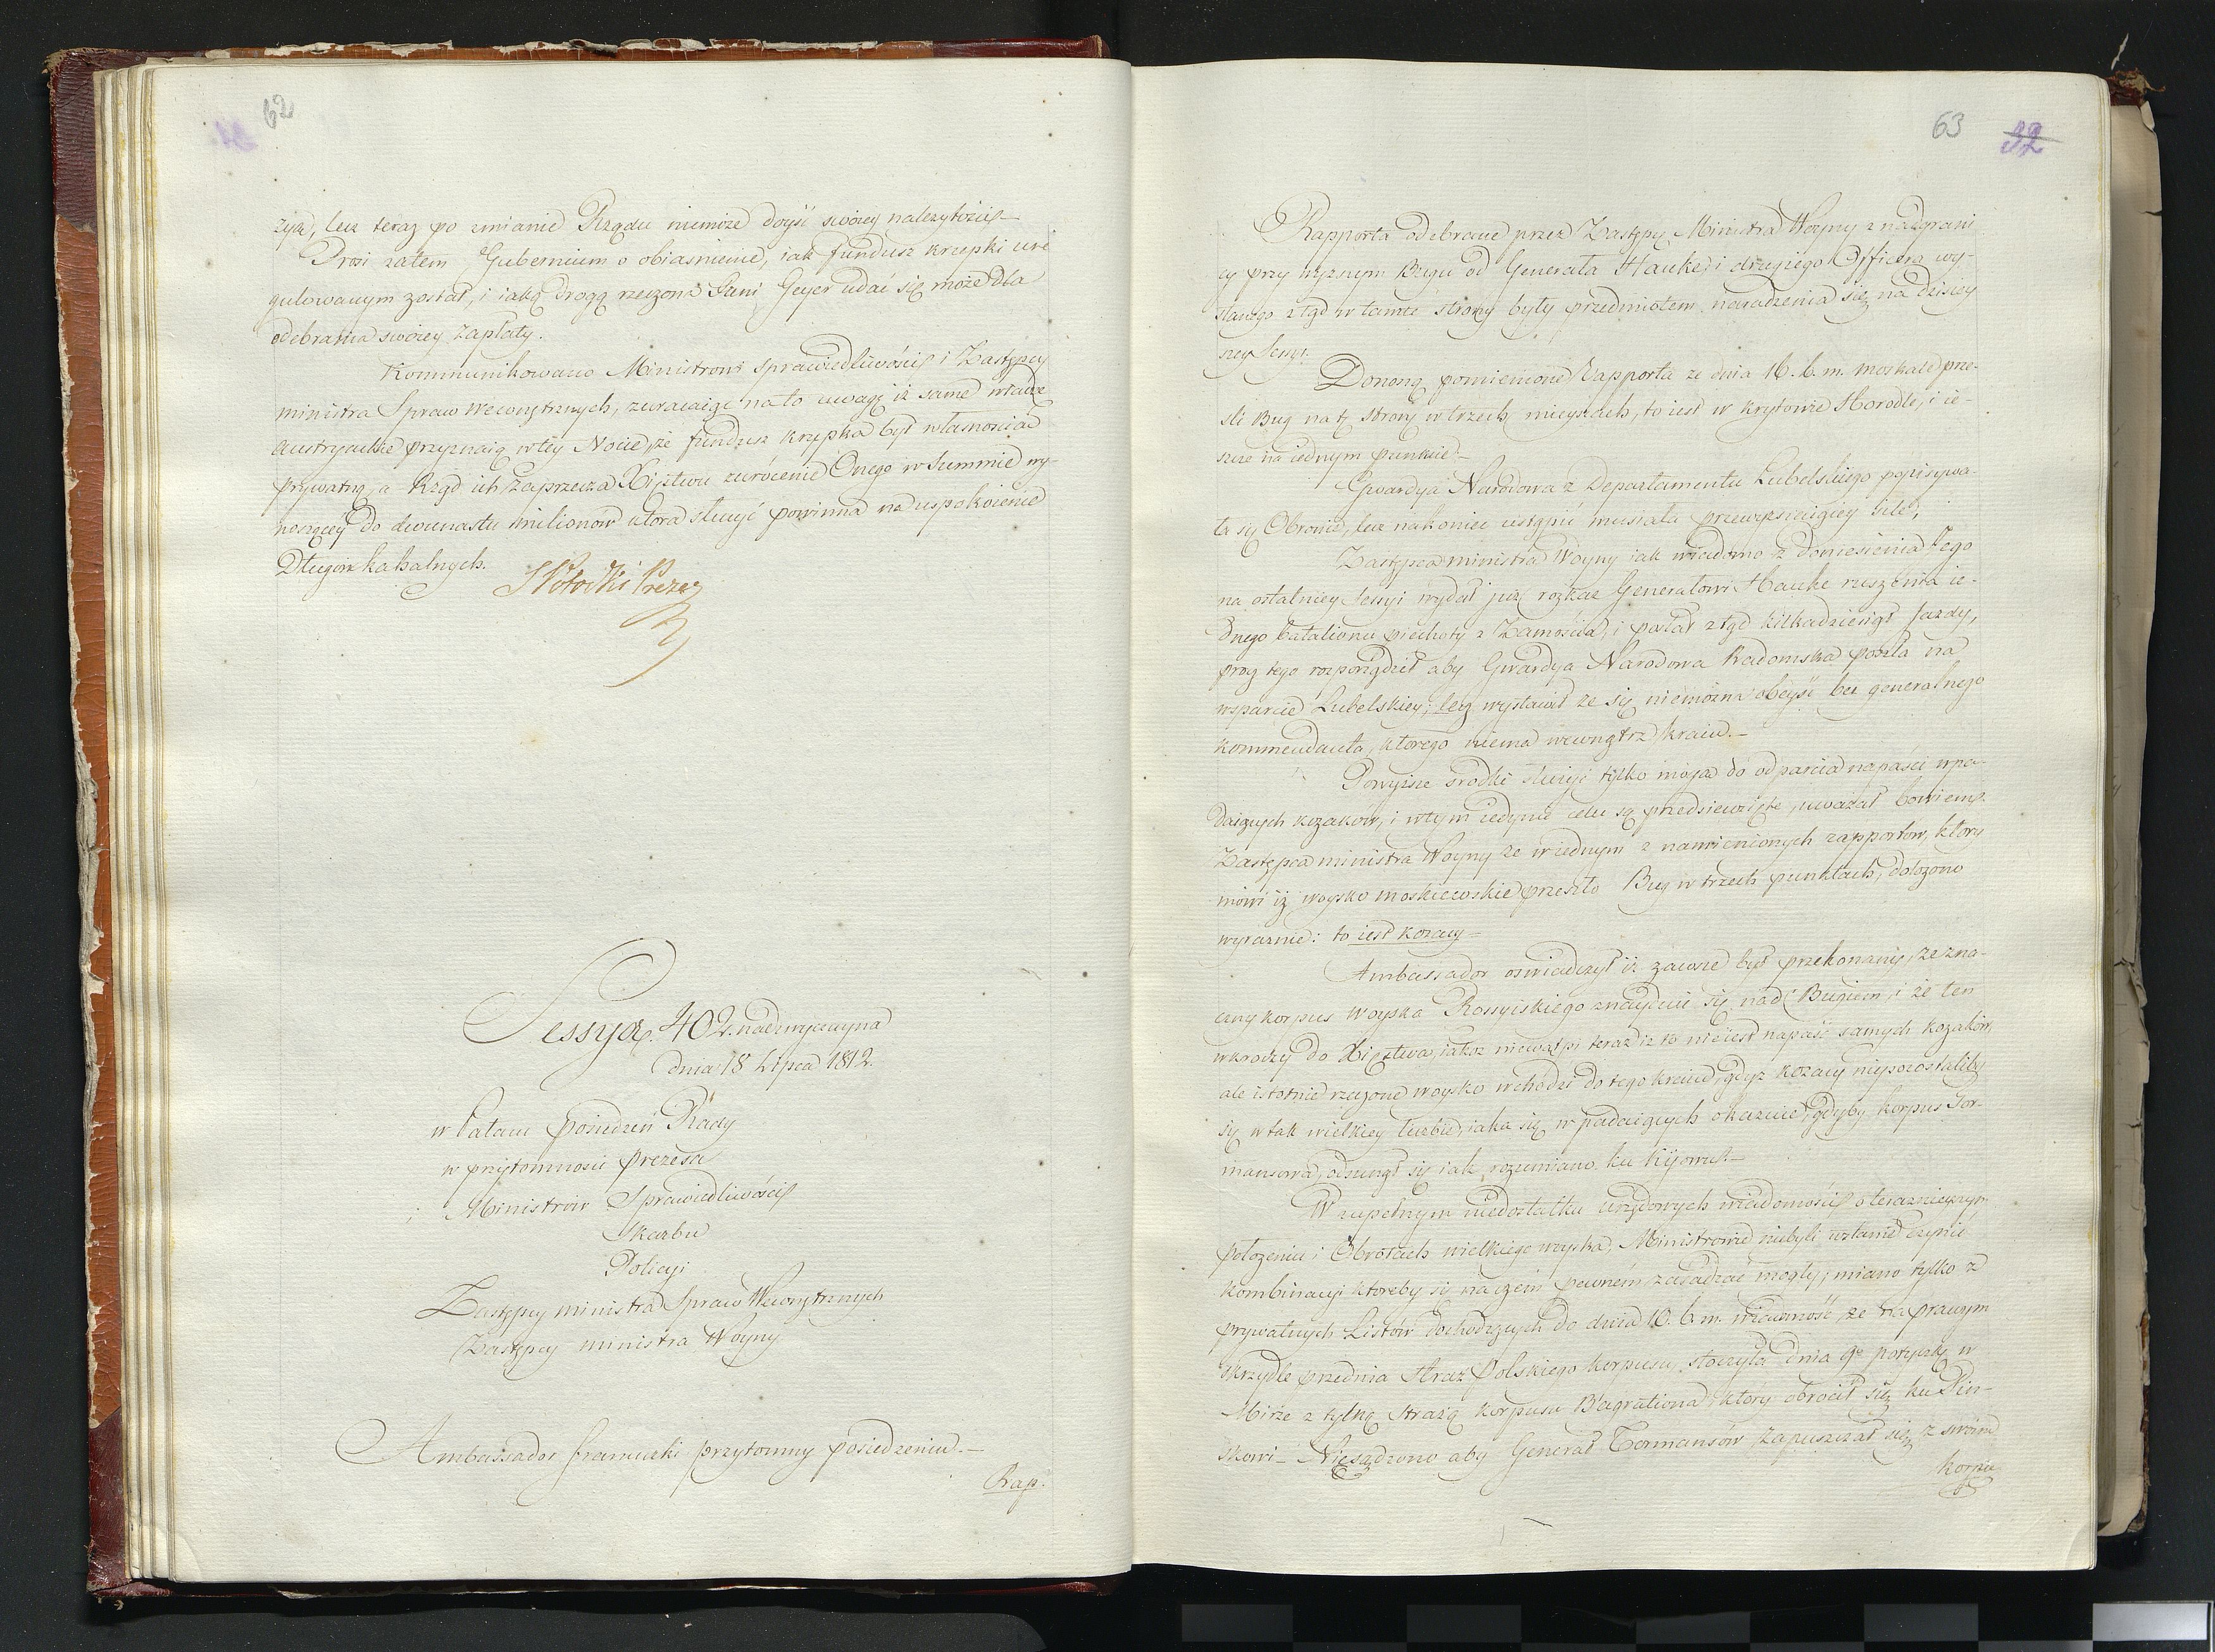 62
życ, lecz teraz po zmianie Rządu niemoże dojść swoiey należytości
Prosi zatem Gubernium o obiaśnienie, iak fundusz krzepki ure
gulowanym został, i iaką drogą rzeczona Pani Geyer udać się może dla
odebrania swoiey zapłaty.
Kommunikowano Ministrowi Sprawiedliwości i Zastępcy
ministra Spraw Wewnętrznych, zwracaiąc na to uwagę iż same władze
Austryackie przyznaią w tey Nocie, że fundusz krzepka był własnością
prywatną, a Rząd ich zaprzecza Xięztwu zwrócenie Onego w Summie wy-
noszącey do dwunastu milionów która służyć powinna na uspokoienie
Długów kahalnych.
S Potocki Prezes
Sessya. 402. nadzwyczayna
dnia 18 Lipca 1812.
w Pałacu posiedzeń Rady
w przytomności prezesa
i Ministrów Sprawiedliwości
Skarbu
Policyi
Zastępcy ministra Spraw Wewnętrznych
Zastępcy ministra Woyny
Ambassador francuzki przytomny posiedzeniu.—
Rap.
63 32
Rapporta odebrane przez Zastępcę Ministra Woyny z nadgrani
cy przy wyższym Bugu od Generała Hauke, i drugiego Officera wy-
słanego ztąd w tamte strony były przedmiotem naradzenia się na dzisiey
szey Sessyi.
Donoszą pomienione Rapporta ze dnia 16. b. m. moskale prze-
śli Bug na tę stronę w trzech mieyscach, to iest w Kryłowie Horodle, i ie-
szcze na iednym punkcie.—
Gwardya Narodowa z Departamentu Lubelskiego popisywa-
ła się Obronie, lecz nakoniec ustąpić musiała przewyższaiącey sile,
Zastępca ministra Woyny iak wiadomo z doniesienia Jego
na ostatniey sessyi wydał już rozkaz Generałowi Hauke ruszenia ie-
dnego batalionu piechoty z Zamościa, i posłał ztąd kilkadziesiąt Jazdy,
procz tego rozporządził aby Gwardya Narodowa Radomska poszła na
wsparcie Lubelskiey, lecz wystawił że się niemożna obeyść bez generalnego
kommendanta, którego niema wewnątrz kraiu.—
Powyższe środki służyć tylko mogą do odparcia napaści wpa-
daiących kozaków, i w tym iedynie celu są przedsięwzięte, uważał bowiem
Zastępca ministra Woyny że w iednym z namienionych rapportów, który
mówi iż woysko moskiewskie przeszło Bug w trzech punktach, dołożono
wyraźnie: to iest kozacy—
Ambassador oświadczył iż zawsze był przekonany, że zna-
czny korpus woyska Rossyiskiego znayduie się nad Bugiem, i że ten
wkroczy do Xięztwa, iakoż niewątpi teraz iż to nie iest napaść samych kozaków,
ale istotnie rzeczone woysko wchodzi do tego kraiu, gdyż kozacy niepozostaliby
się w tak wielkiey liczbie, iaka się w padaiących okazuie, gdyby korpus Tor-
mansowa, odsunął się iak rozumiano ku Kijowu.—
W zupełnym niedostatku urzędowych wiadomości o teraznieyszym
położeniu i Obrotach wielkiego woyska, Ministrowie niebyli w stanie czynić
kombinacyi ktoreby się na czém pewném zasadzać mogły; miano tylko z
prywatnych Listów dochodzących do dnia 10. b. m. wiadomość, że na prawym
skrzydle przednia Straż Polskiego korpusu stoczyła dnia 9o potyczkę w
Mirze z tylną Strażą korpusu Bagrationa, który obrócił się ku Piń-
skowi— Niesądzono aby Generał Tormansów zapuszczał się z swoim
korpu